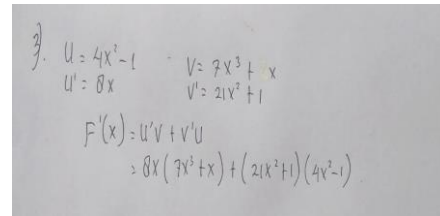 3). U = 4x² - 1
V = 7x³ + x
U' = 8x
V' = 21x² + 1
F'(x) = U'V + V'U
= 8x(7x³ + x) + (21x² + 1)(4x² - 1)